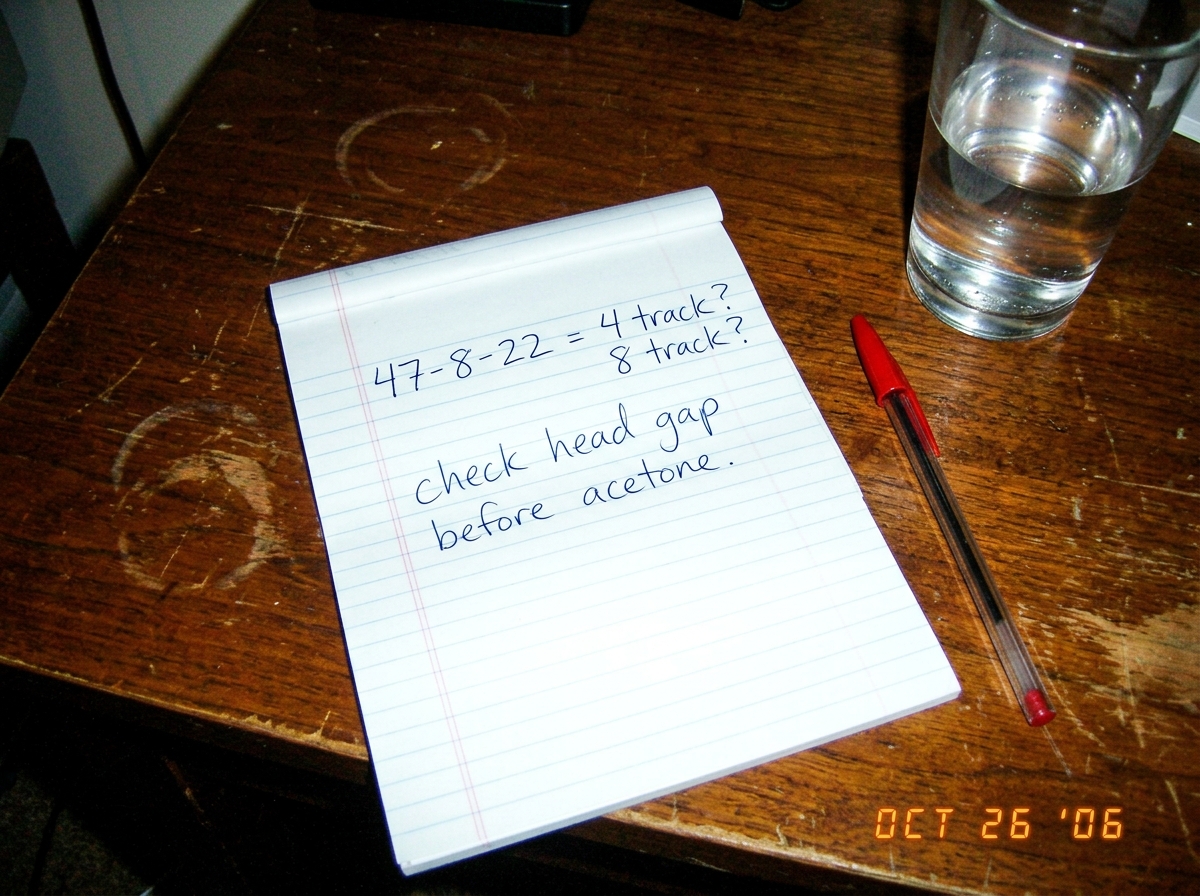 47-8-22 = 4 track?
8 track?
check head gap
before acetone.
OCT 26 '06